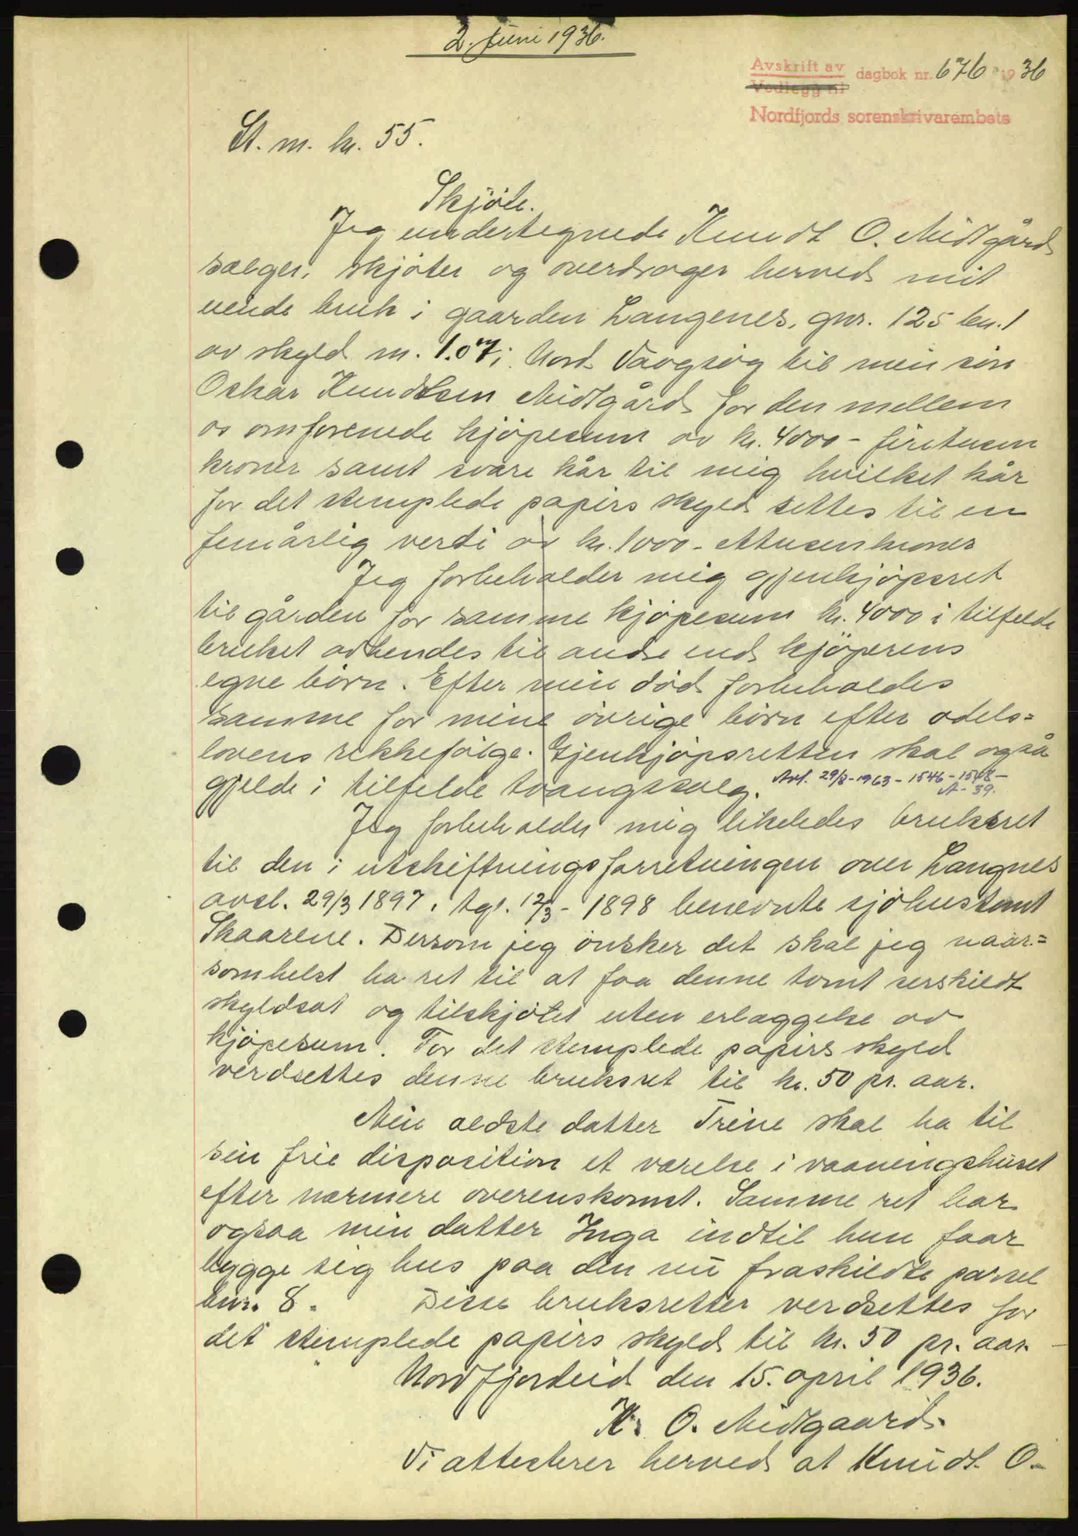 2. juni 1936.
Avskrift av
Vedlegg til
dagbok nr. 676 1936
Nordfjords sorenskrivarembete
St. m. kr. 55.
Skjöte.
Jeg undertegnede Knudt O. Midtgård
sælger, skjöter og overdrager herved mit
eiende bruk i gaarden Langenes, gnr. 125 bn. 1
av skyld m. 1.07 i Nord Vaagsög til min sön
Oskar Knudtsen Midtgård for den mellem
os omforenede kjöpesum av kr. 4000 - firetusen
kroner samt svare kår til mig hvilket kår
for det stemplede papirs skyld settes til en
femårlig verdi av kr. 1000 - ettusenkroner
Jeg forbeholder mig gjenkjöpsret
til gården for samme kjöpesum kr. 4000 i tilfelde
bruket avhendes til andre end kjöperens
egne börn. Efter min död forbeholdes
samme for mine övrige börn efter odels=
lovens rekkefölge. Gjenkjöpsretten skal også
gjelde i tilfelde tvangssalg. Avl. 29/8-1963 - 1546-1548-
A-39.
Jeg forbeholder mig likeledes bruksret
til den i utskiftningsforretningen over Langnes
avsl. 29/3 1897, tgl. 12/3 - 1898 benevnte sjöhustomt
Skaarene. Dersom jeg önsker det skal jeg naar=
somhelst ha ret til at faa denne tomt serskildt
skyldsat og tilskjötet uten erlæggelse av
kjöpesum. For det stemplede papirs skyld
verdsettes denne bruksret til kr. 50 pr. aar.
Min ældste datter Trine skal ha til
sin frie disposition et værelse i vaaningshuset
efter nærmere overenskomst. Samme ret har
ogsaa min datter Inga indtil hun faar
bygge sig hus paa den nu fraskildte parsel
bnr. 8. Disse bruksretter verdsettes for
det stemplede papirs skyld til kr. 50 pr. aar.
Nordfjordeid den 15. april 1936.
K. O. Midtgaard.
Vi attesterer herved at Knudt O.